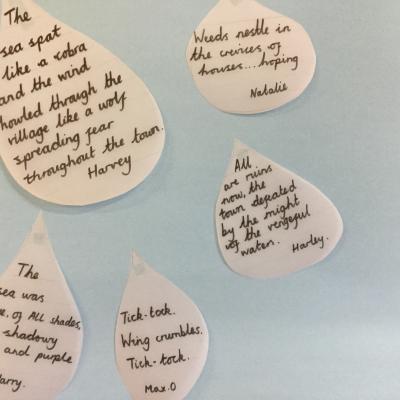 The
sea spat
like a cobra
and the wind
howled through the
village like a wolf
spreading fear
throughout the town.
Harvey
Weeds nestle in
the crevices of
houses....hoping
Natalie
All
are ruins
now, the
town defeated
by the might
of the vengeful
water.
Harley.
The
sea was
of All shades,
shadowy
and purple
Harry.
Tick-tock.
Wring crumbles.
Tick-tock.
Max.O